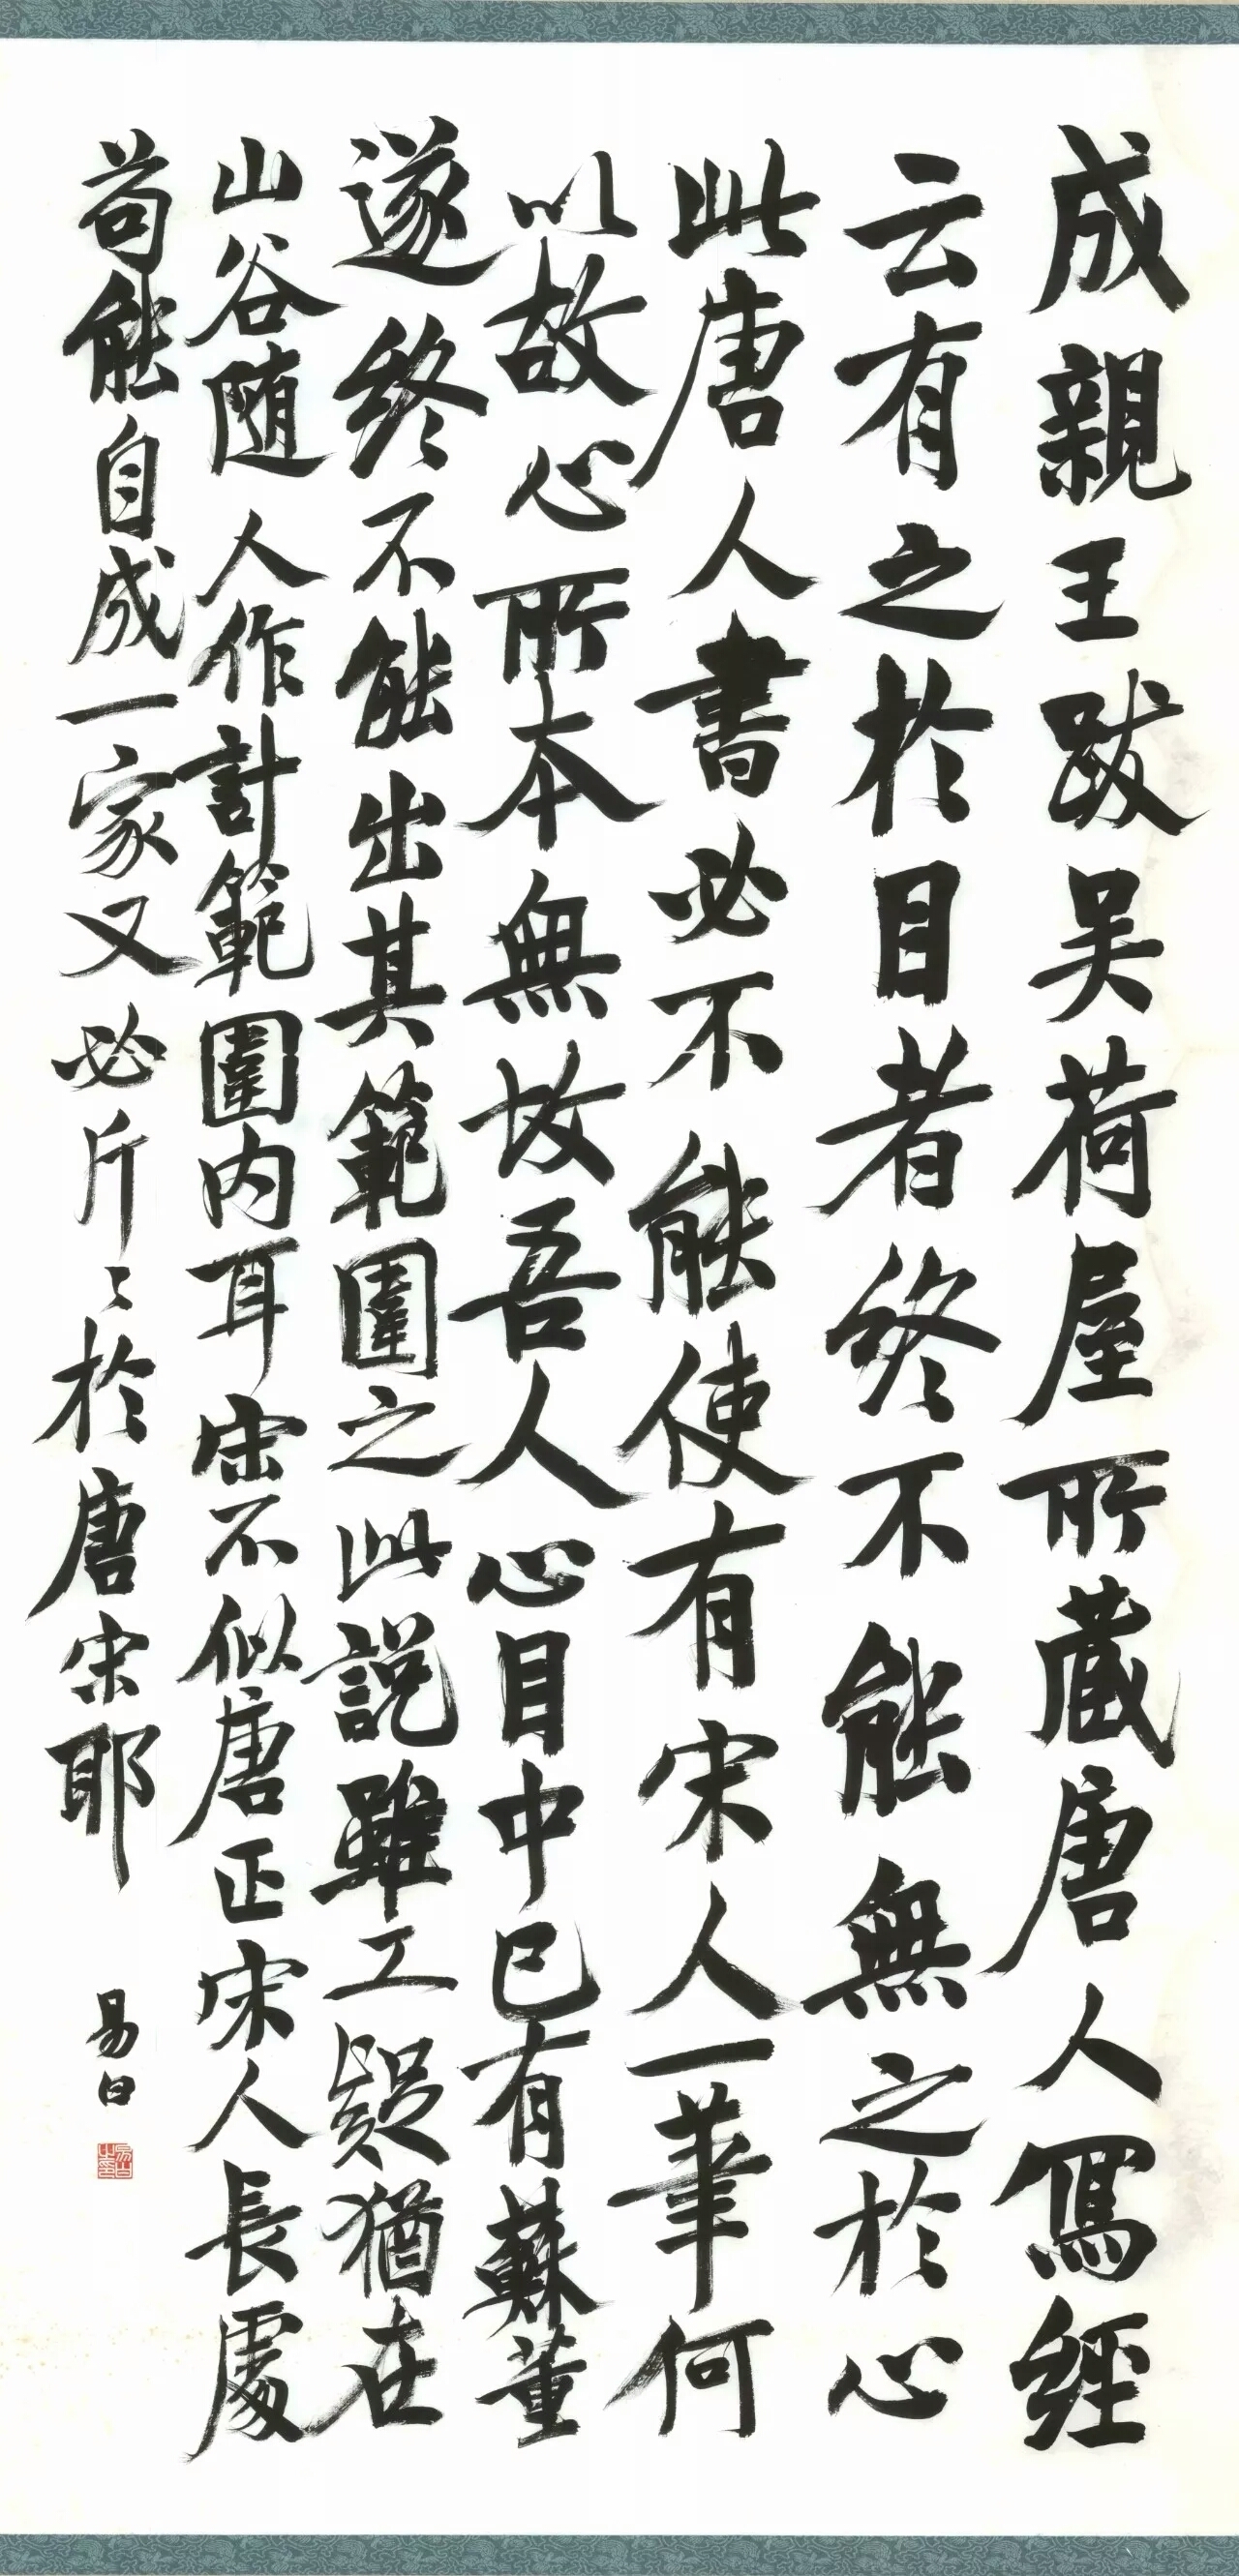 成親王跋吴荷屋所藏唐人寫經
云有之於目者終不能無之於心
此唐人書必不能使有宋人一筆何
以故心所本無故吾人心目中已有蘇董
遂終不能出其範圍之此說雖工疑猶在
山谷随人作計範圍內耳宋不似唐正宋人長處
苟能自成一家又必斤〻於唐宋耶
易日